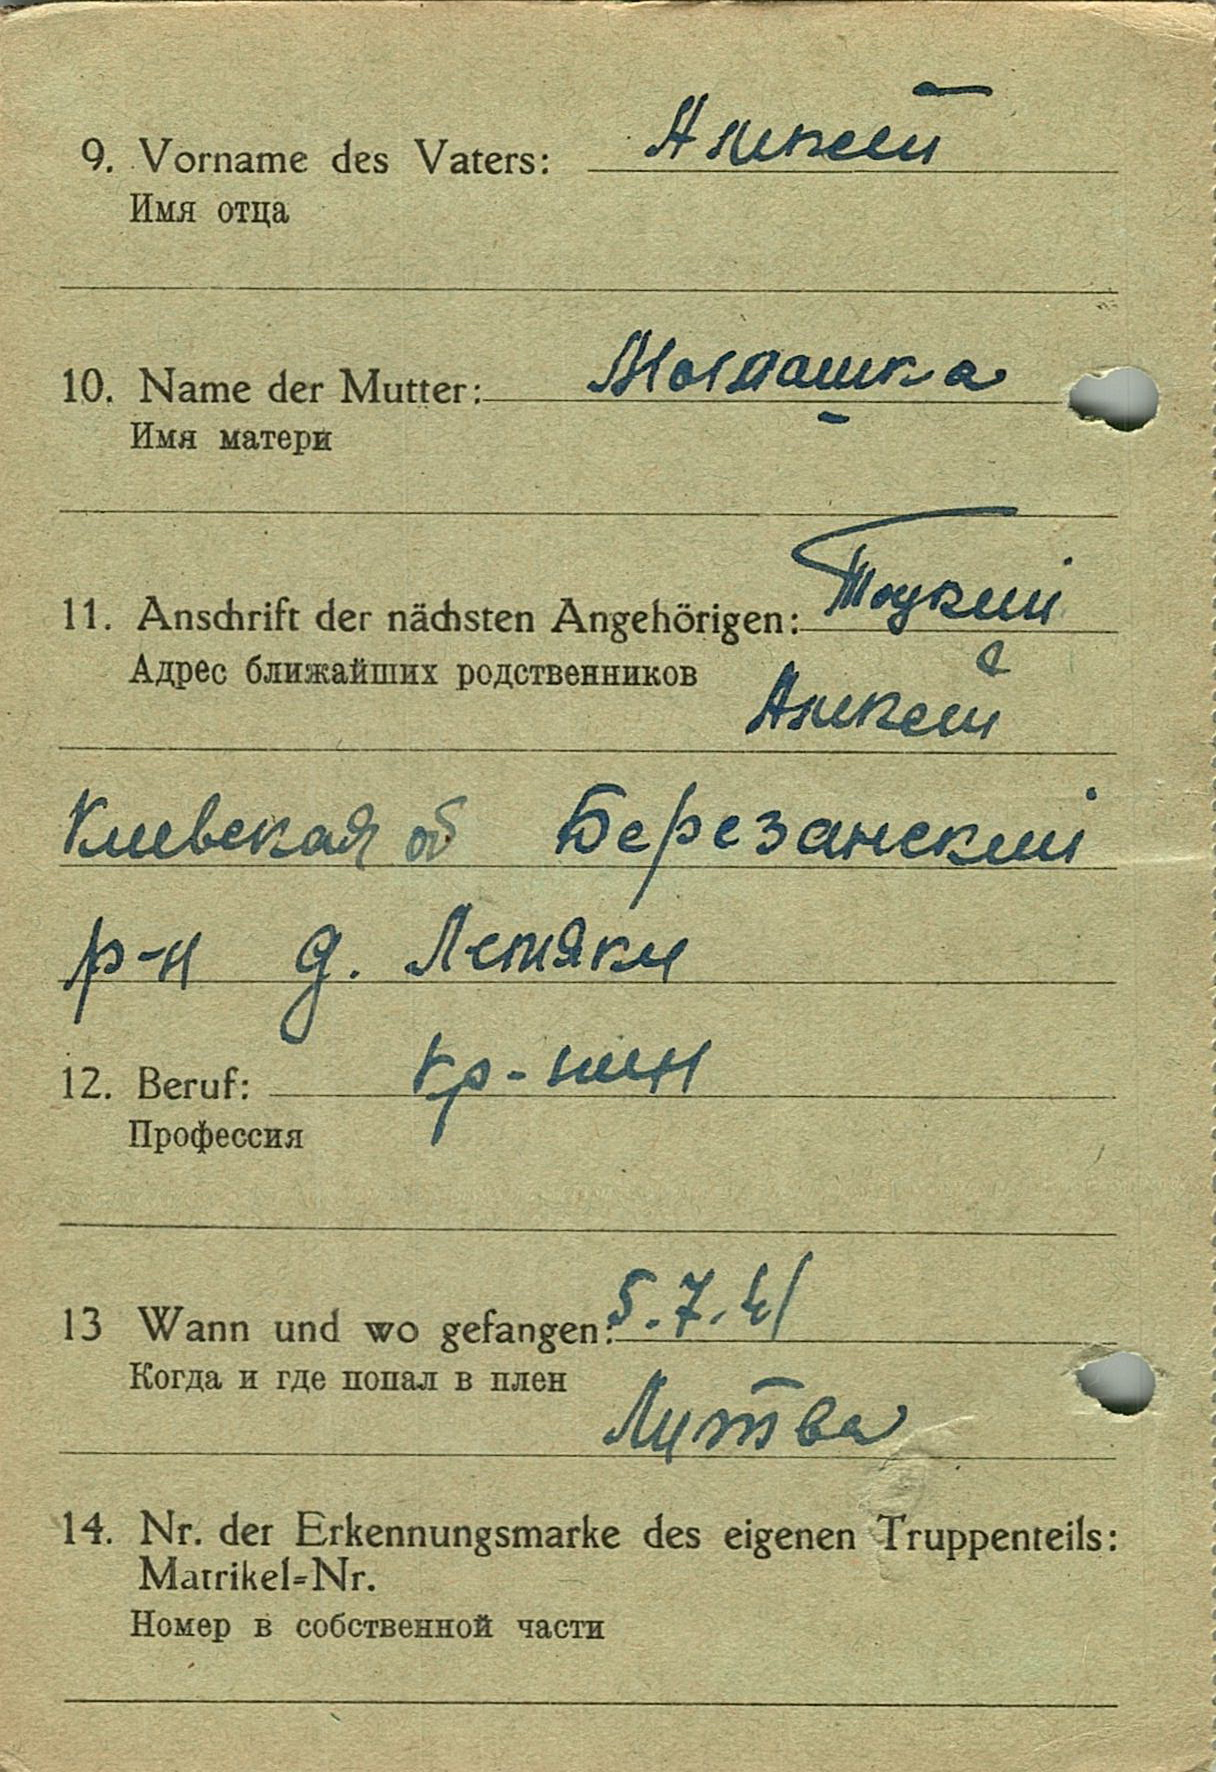 9. Vorname des Vaters: Аникей
Имя отца
10. Name der Mutter:
Имя матери
11. Anschrift der nächsten Angehörigen: Тоцкий
Адрес ближайших родственников
Аникей
Киевская об Березанский
р-н д. Лепяки
12. Beruf: кр-нин
Профессия
13 Wann und wo gefangen: 5.7.41
Когда и где попал в плен
Литва
14. Nr. der Erkennungsmarke des eigenen Truppenteils:
Matrikel=Nr.
Номер в собственной части